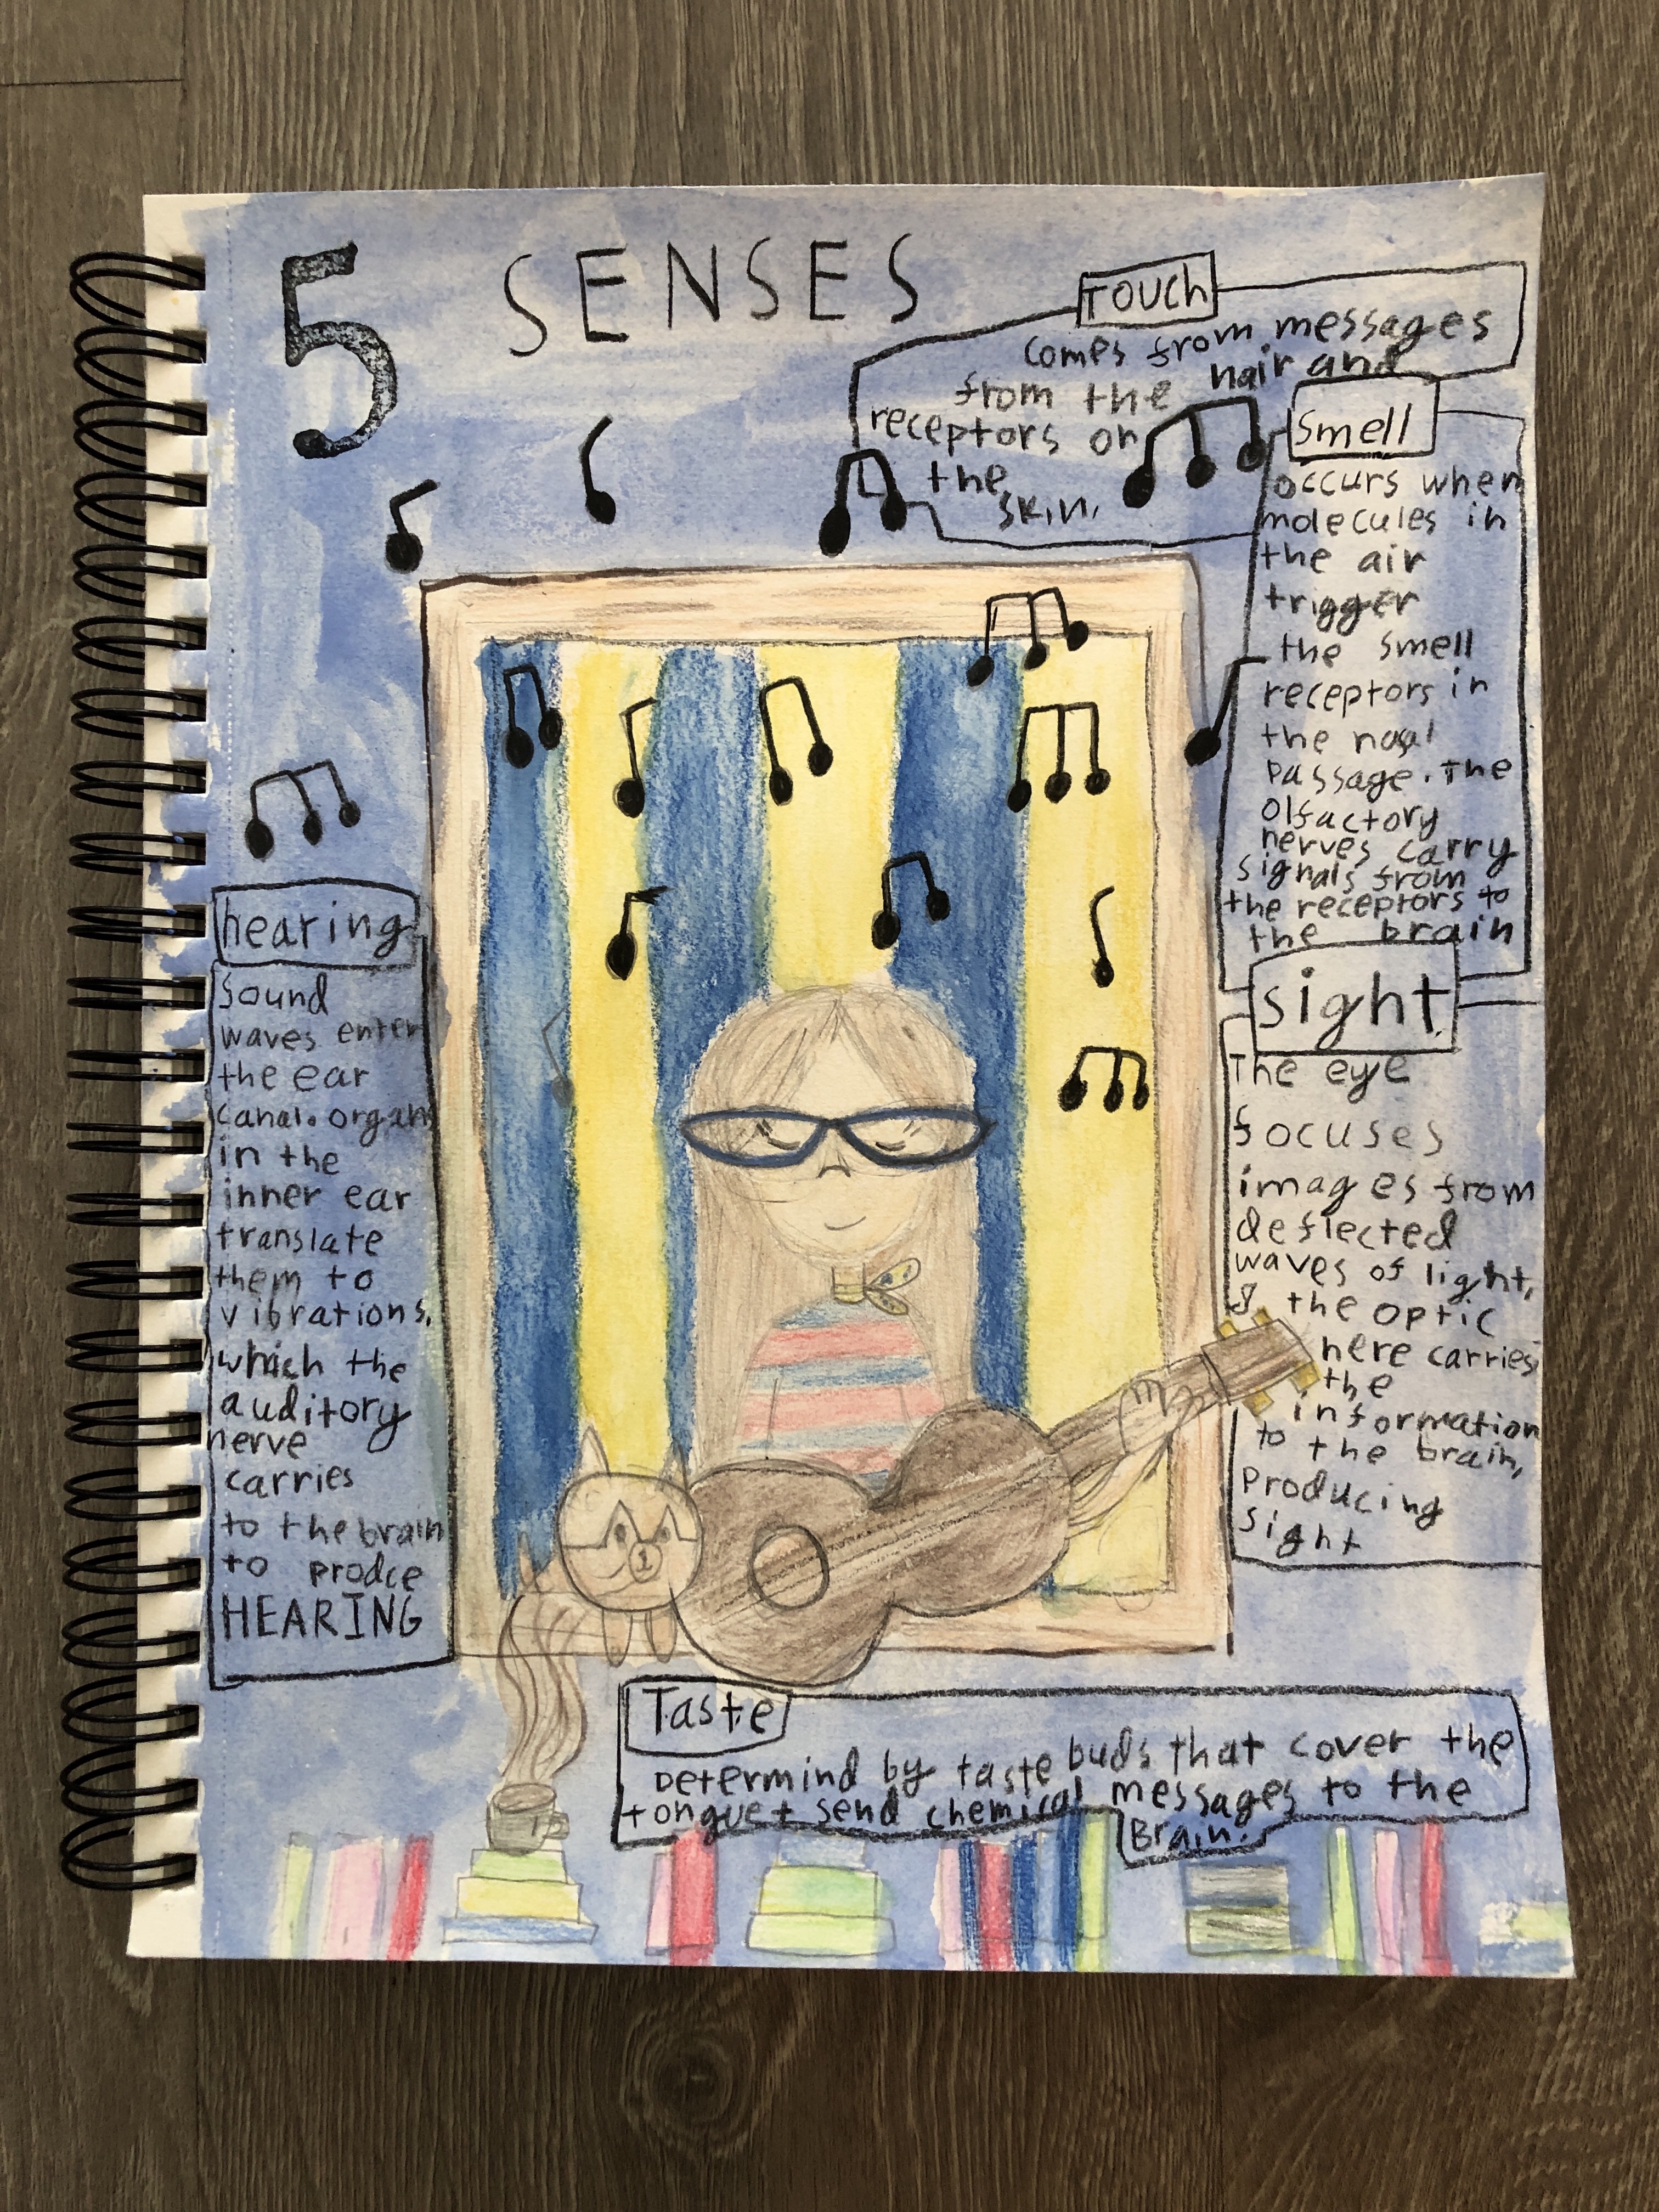 5 SENSES
TOUCH
comes from messages
from the hair and
receptors on
the
skin.
Smell
occurs when
molecules in
the air
trigger
the smell
receptors in
the nasal
passage. The
olfactory
nerves carry
signals from
the receptors to
the brain
sight
The eye
focuses
images from
deflected
waves of light,
& the optic
nere carries
the
information
to the brain,
producing
sight
hearing
Sound
waves enter
the ear
canal. organs
in the
inner ear
translate
them to
vibrations,
which the
auditory
nerve
carries
to the brain
to prodce
HEARING
Taste
Determind by taste buds that cover the
tongue + send chemical messages to the
Brain.